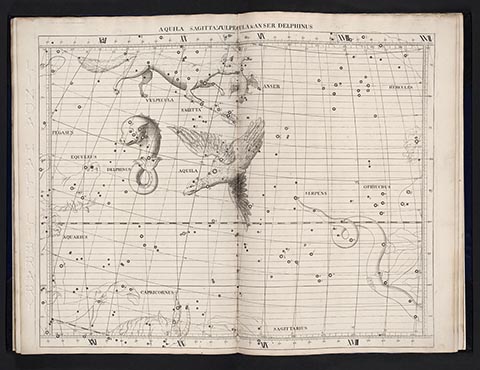 AQUILA SAGITTA VULPECULA & ANSER DELPHINUS
VULPECULA
ANSER
HERCULES
SAGITTA
PEGASUS
EQUULEUS
DELPHINUS
AQUILA
SERPENS
OPHIUCHUS
AQUARIUS
CAPRICORNUS
SAGITTARIUS